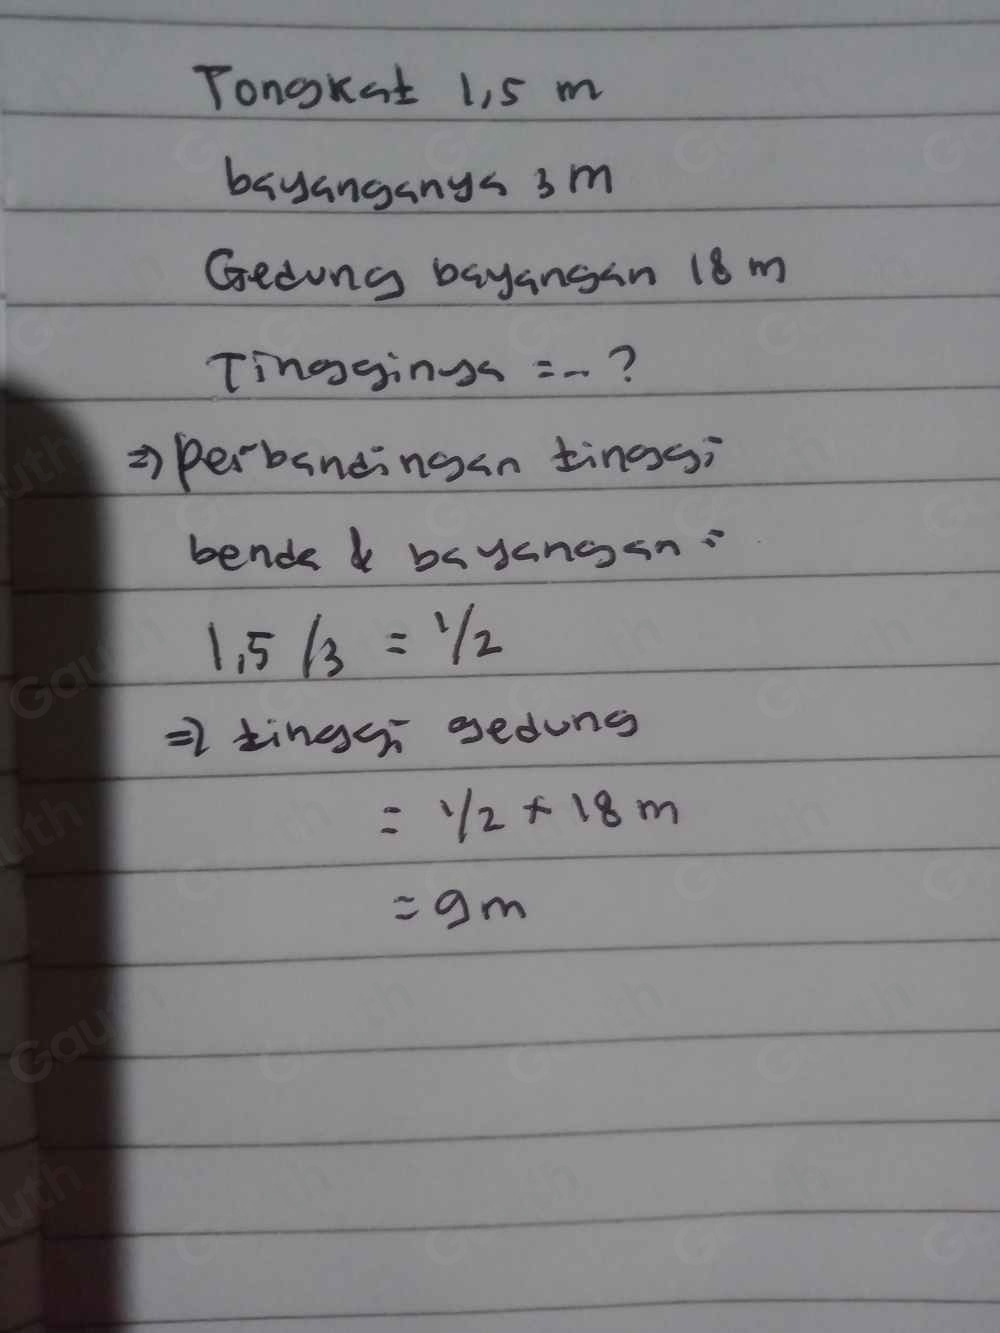 Tongkat 1,5 m
bayanganya 3 m
Gedung bayangan 18 m
Tingginya = .. ?
=> Perbandingan tinggi
benda & bayangan :
1,5 / 3 = 1/2
=> tinggi gedung
= 1/2 × 18 m
= 9 m